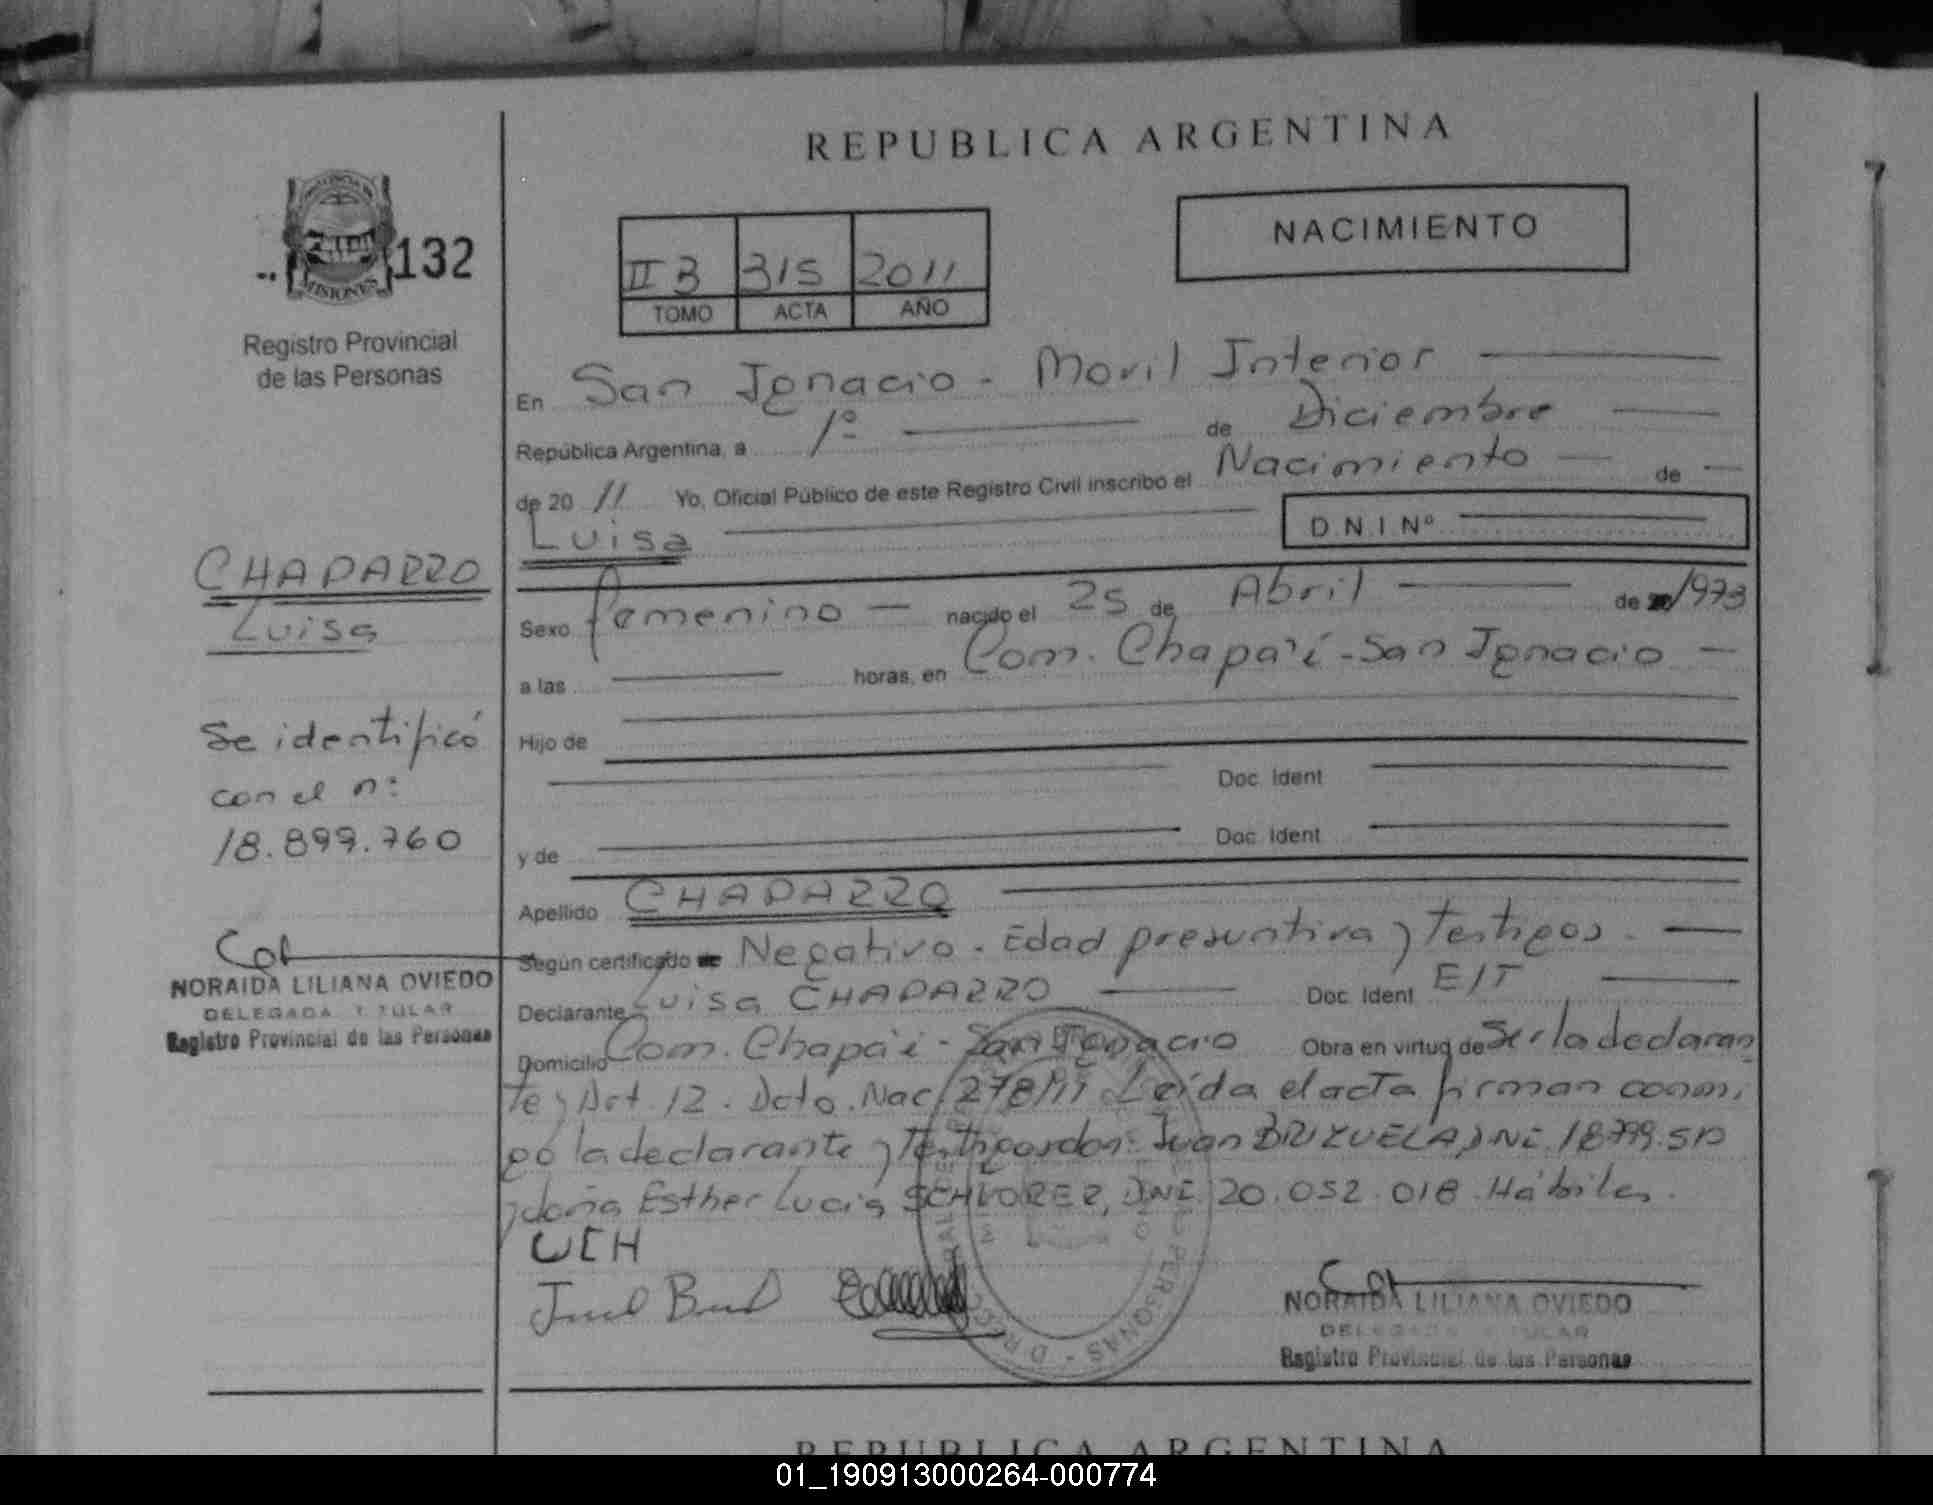 REPUBLICA ARGENTINA
132
MISIONES
Registro Provincial
de las Personas
NACIMIENTO
II B 315 2011
TOMO ACTA AÑO
En San Ignacio - Movil Interior
República Argentina, a 1º de Diciembre
de 20 11 Yo, Oficial Público de este Registro Civil inscribo el Nacimiento de
Luisa D.N.I. Nº
CHAPARRO
Luisa
Sexo femenino nacido el 25 de Abril de 1973
a las horas, en Com. Chapa'i - San Ignacio
Hijo de
Doc. Ident
y de Doc. Ident
Se identificó
con el n:
18.899.760
Apellido CHAPARRO
Según certificado de Negativo. Edad presuntiva y testigos.
Declarante Luisa CHAPARRO Doc. Ident E/T
Domicilio Com. Chapa'i - San Ignacio Obra en virtud de Ser la declaran
te y Art. 12. Dcto. Nac. 278/11 Leída el acta firman conmi
go la declarante y testigos don: Juan BRIZUELA, DNI.
y doña Esther Lucia DNI. 20.052.018 Hábiles.
LCH
NORAIDA LILIANA OVIEDO
DELEGADA TITULAR
Registro Provincial de las Personas
NORAIDA LILIANA OVIEDO
DELEGADA TITULAR
Registro Provincial de las Personas
REPUBLICA ARGENTINA
01_190913000264-000774